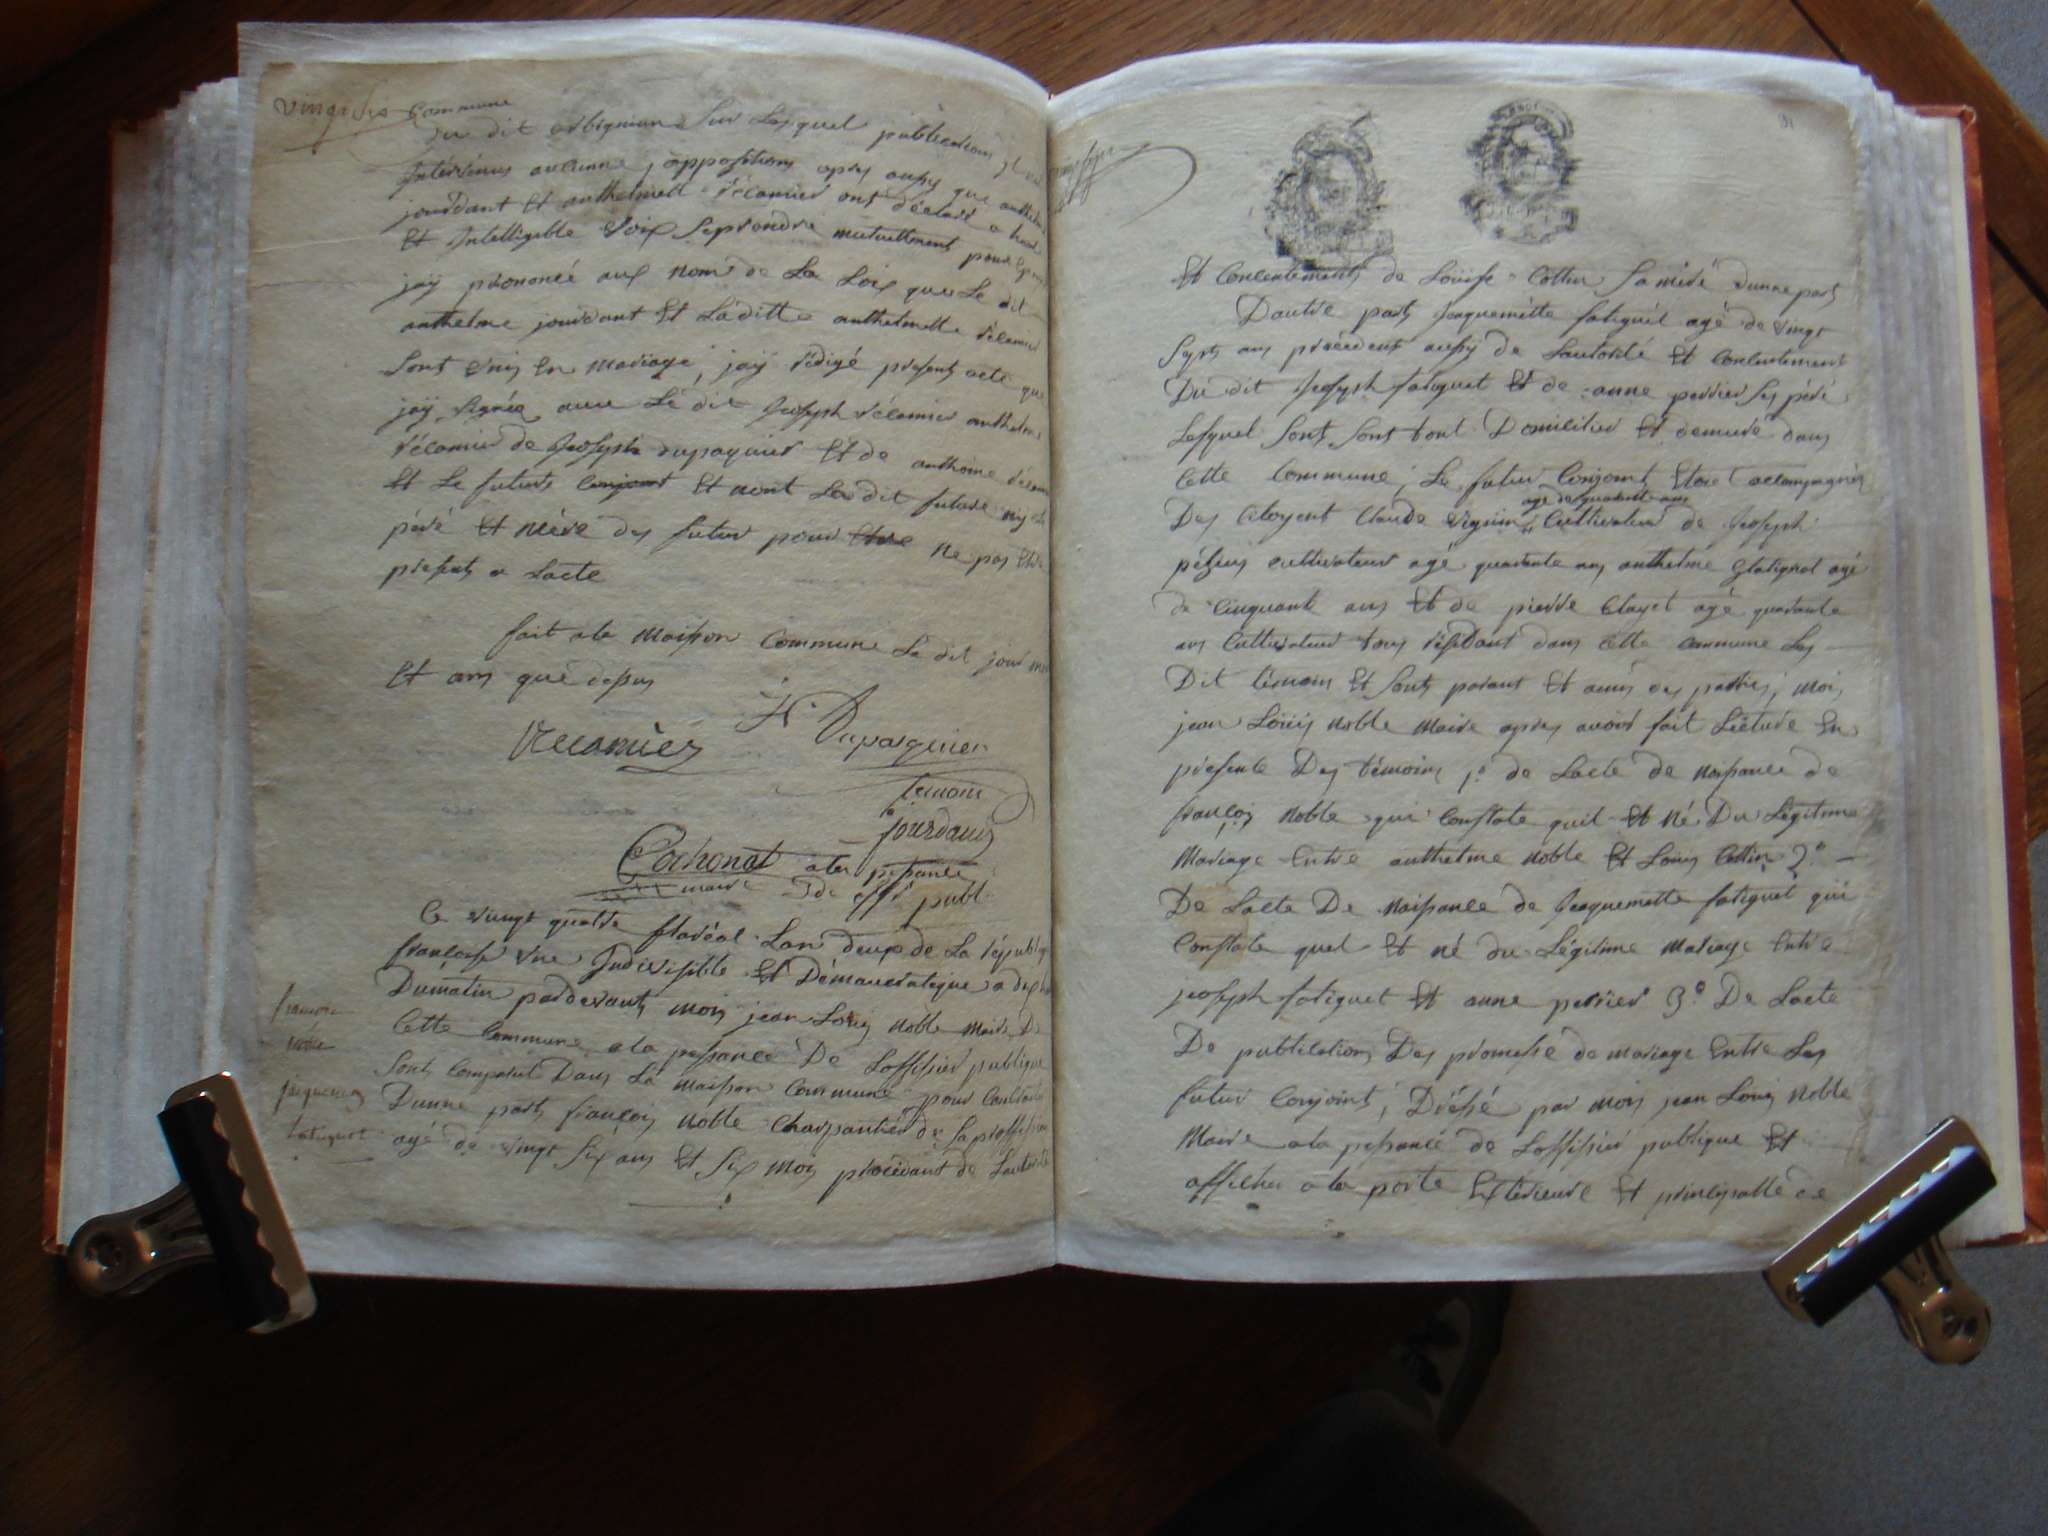 vingt six Commune
du dit arbignieu Sur Lesquel publications il
Intervenus aucunne opposition apres aussy que anthelme
jourdant Et anthelmette Récamier ont déclaré a haute
Et Intelligible voix Seprendre mutuellment pour
jaÿ prononcé aux nom de La Loix que Le dit
anthelme jourdant Et Laditte anthelmette récamier
Sont unis En mariage, jaÿ rédigé present acte que
jaÿ Signée avec Le dit Joseph récamier anthelme
récamier de Joseph dupaquier Et de anthoine
Et Le futurs conjoint Et nont La dit future ny
péré Et méré des futur pour Etre ne pas Etre
present a Lacte
fait ala Maison Commune Le dit jour
Et ans que dessus
Recamier
Dupasquier
temoin
jourdant
Cochonat ala pessance
maire de off publ
Ce vingt quatre floréal Lan deux de La républiqe
françoise une Indivisible Et Démaucratique a dix
Dumatin pardevant moy jean Louis noble maire De
Cette Commune ala pessance De Loffissier publique
Sont Comparut Dans La maison Commune pour
Dunne part françois noble Charpantier de Saproffission
agé de vingt Six ans Et Six mois procédant de Lautorité
francois
noble
jaquemette
fatiguet
Et Concentements de Louise Cottin Samére dunne part
Dautre parts Jaquemette fatiguet agé de vingt
Sept ans procédent aussy de Lautorité Et Concentement
Du dit Joseph fatiguet Et de anne perrier Ses péré
Lesquel Sont Sont tout Domicilier Et demeure dans
Cette Commune; Le futur Conjoint Etoit accompagnéz
age de quarente ans
Des Citoyent Claude vignier Cultivateur de Joseph
cultivateur agé quarente ans anthelme glatignol agé
de Cinquante ans Et de pierre Clayet agé quarante
ans Cultivateur tous résidant dans Cette Commune Les
Dit témoins Et Sont parant Et amis des parties; moy
jean Louis noble maire apres avoir fait Lecture En
presente Des témoins 1.° de Lacte de naissance de
françois noble qui Constate quil Et né Du Légitime
Mariage Entre anthelme noble Et Louise Cottin 2.°
De Lacte De naissance de Jaquemette fatiguet qui
Constate quel Et né du Légitime mariage Entre
joseph fatiguet Et anne perrier 3.° De Lacte
De publication Des promesse de mariage Entre Les
futur Conjoint; Drésé par moy jean Louis noble
Maire ala pessance de Loffissier publique Et
afficher a la porte Extérieure Et principalle de